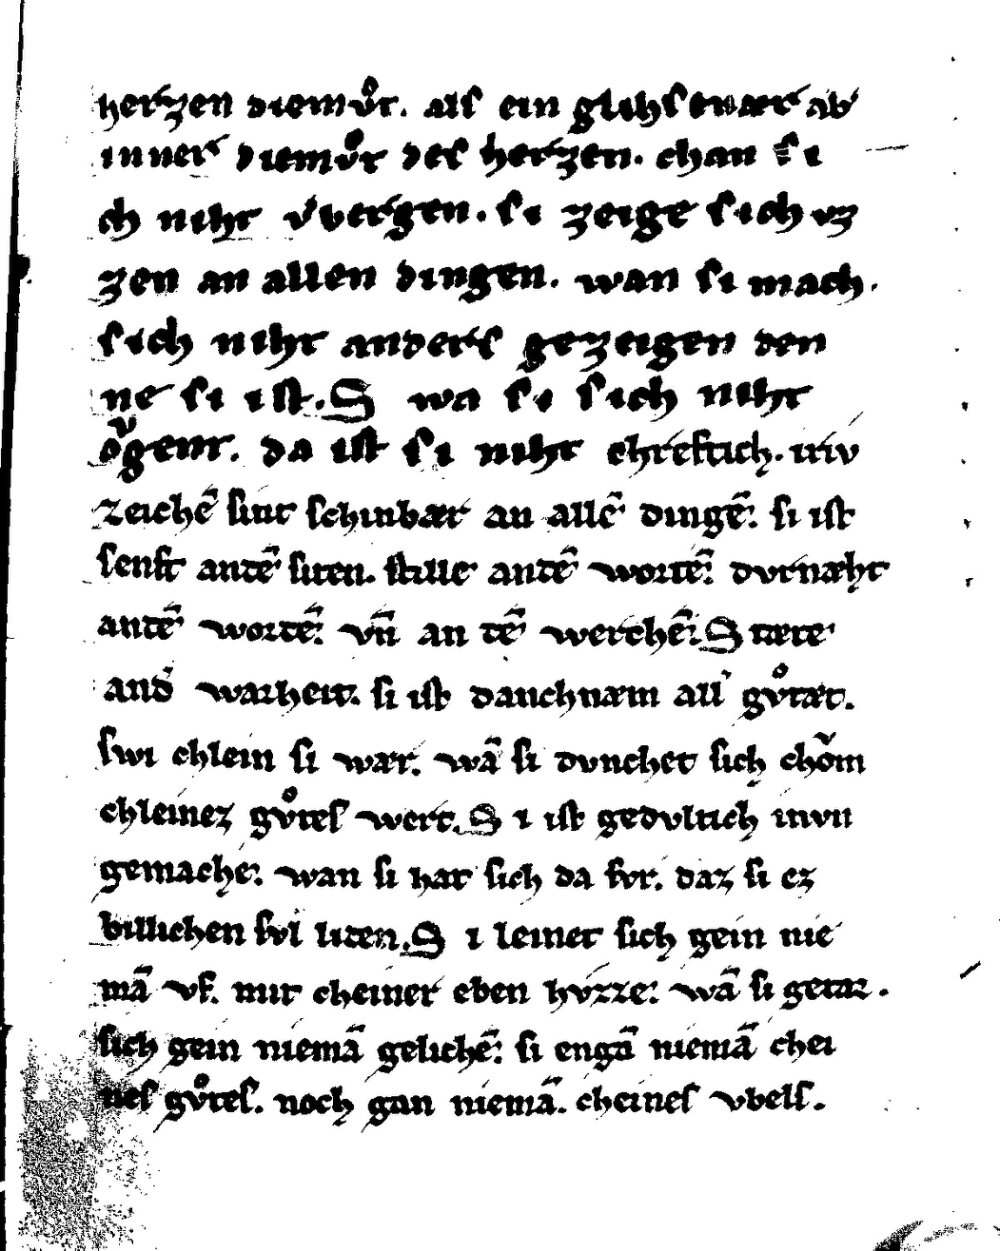 herzen diemvͦt. als ein glihsenær ab
inner diemvͦt des herzen. chan si
ch niht v̓bergen. si zeige sich vz
zen an allen dingen. wan si mach.
sich niht anders gezeigen den
ne si ist. S wa si sich niht
oͮgent. da ist si niht chreftich. iriv
zeichē sint schinbær an allē dingē. si ist
senft antē siten. stille antē wortē. dvrnæht
antē wortē. vn̄ an tē werchē. S tæte
and̓ warheit. si ist danchnæm all̓ gvͦtæt.
swi chlein si wær. wā si dvnchet sich choͮm
chleinez gvͦtes wert. S i ist gedvltich in vn
gemache. wan si hat sich da fvr. daz si ez
billichen svl liten. S i leinet sich gein nie
mā vf. mit cheiner eben hvzze. wā si getar.
sich gein niemā gelichē. si engā niemā chei
nes gvͦtes. noch gan niemā. cheines vbels.